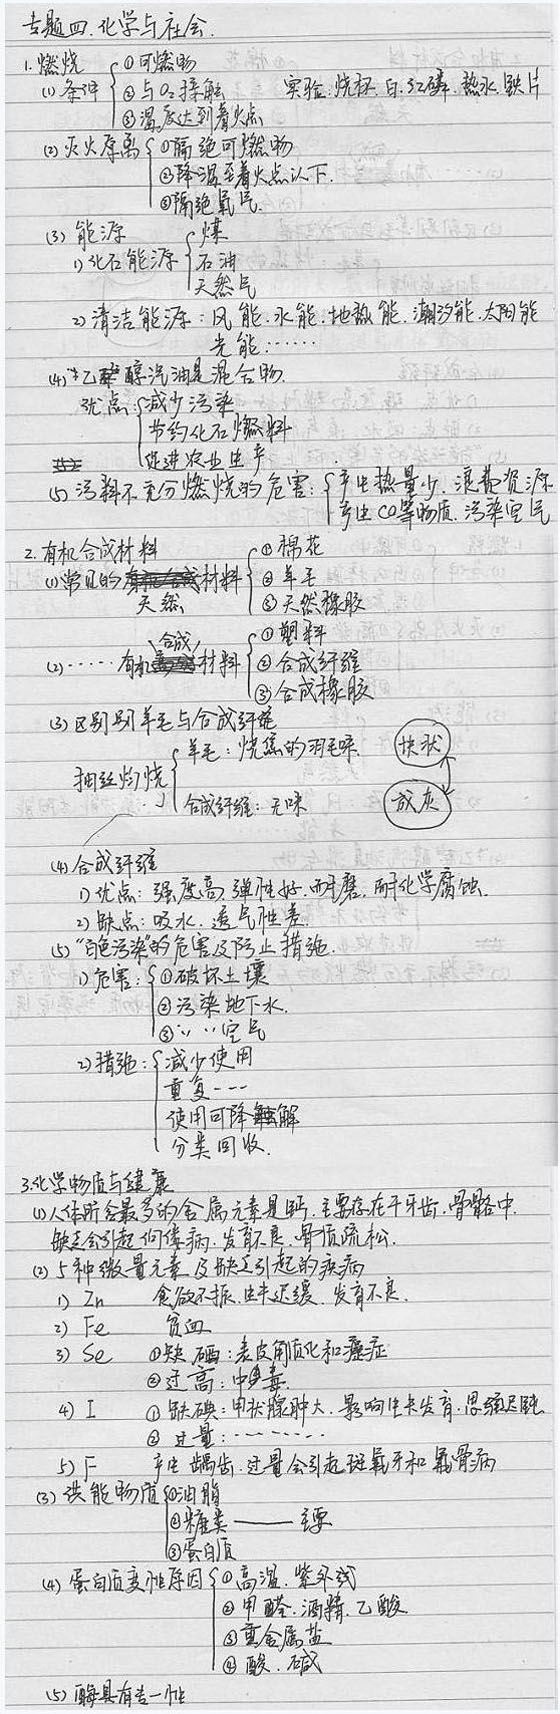 专题四.化学与社会.
1.燃烧
(1)条件 ①可燃物
②与O₂接触
③温度达到着火点
实验:烧杯.白.红磷.热水.铁片
(2)灭火原离 ①隔绝可燃物
②降温至着火点以下.
③隔绝氧气.
(3)能源
1)化石能源 煤
石油
天然气
2)清洁能源:风能.水能.地热能.潮汐能.太阳能
光能……
(4)乙醇汽油是混合物.
优点:减少污染
节约化石燃料
促进农业生产
(5)污料不充分燃烧的危害:产生热量少.浪费资源
产生CO等物质.污染空气
2.有机合成材料
(1)常见的天然材料 ①棉花
②羊毛
③天然橡胶
(2)……有机合成材料 ①塑料
②合成纤维
③合成橡胶
(3)区别别羊毛与合成纤维
抽丝灼烧 羊毛:烧焦的羽毛味.
合成纤维:无味
块状
成灰
(4)合成纤维
1)优点:强度高.弹性好.耐磨.耐化学腐蚀.
2)缺点:吸水.透气性差.
(5)"白色污染"的危害及防止措施.
1)危害:①破坏土壤
②污染地下水.
③〃 〃空气
2)措施:减少使用
重复---
使用可降解
分类回收.
3.化学物质与健康
(1)人体所含最多的金属元素是钙.主要存在于牙齿.骨骼中.
缺乏会引起佝偻病.发育不良.骨质疏松.
(2)5种微量元素及缺乏引起的疾病
1)Zn 食欲不振.生长迟缓.发育不良.
2)Fe 贫血
3)Se ①缺硒:表皮角质化和癌症
②过高:中毒.
4)I ①缺碘:甲状腺肿大.影响生长发育.思维迟钝
②过量:--------
5)F 产生龋齿.过量会引起斑氟牙和氟骨病
(3)供能物质 ①油脂
②糖类——主要
③蛋白质
(4)蛋白质变性原因 ①高温.紫外线
②甲醛.酒精.乙酸
③重金属盐
④酸.碱
(5)酶具有专一性